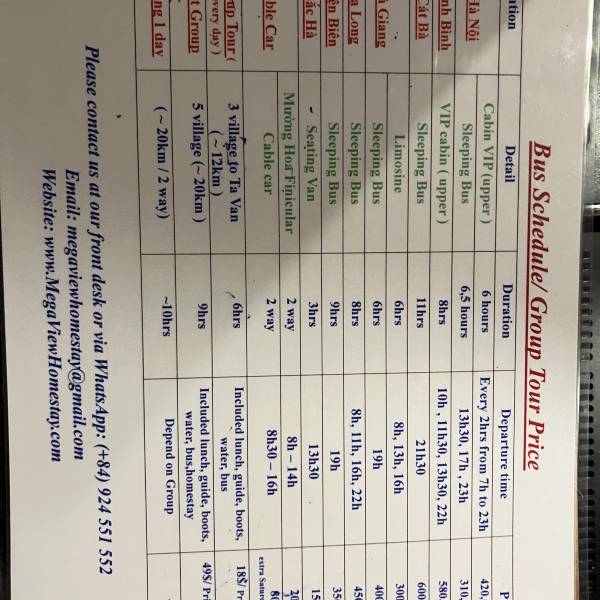 Bus Schedule/ Group Tour Price
ation Detail Duration Departure time P
Hà Nội Cabin VIP (upper ) 6 hours Every 2hrs from 7h to 23h 420,
Sleeping Bus 6,5 hours 13h30, 17h , 23h 310,
nh Bình VIP cabin ( upper ) 8hrs 10h , 11h30, 13h30, 22h 580
Cát Bà Sleeping Bus 11hrs 21h30 600
Giang Limosine 6hrs 8h, 13h, 16h 300
Sleeping Bus 6hrs 19h 400
a Long Sleeping Bus 8hrs 8h, 11h, 16h, 22h 450
ện Biên Sleeping Bus 9hrs 19h 350
ắc Hà Seating Van 3hrs 13h30 15
ble Car Mường Hoa Finicular 2 way 8h – 14h 20
Cable car 2 way 8h30 – 16h 80
extra Satur
Tour ( 3 village to Ta Van 6hrs Included lunch, guide, boots, 18$/ Pr
very day ) ( ~ 12km ) water, bus
t Group 5 village (~ 20km ) 9hrs Included lunch, guide, boots, 49$/ Pri
water, bus,homestay
ng 1 day ( ~ 20km / 2 way) ~10hrs Depend on Group
Please contact us at our front desk or via WhatsApp: (+84) 924 551 552
Email: megaviewhomestay@gmail.com
Website: www.MegaViewHomestay.com